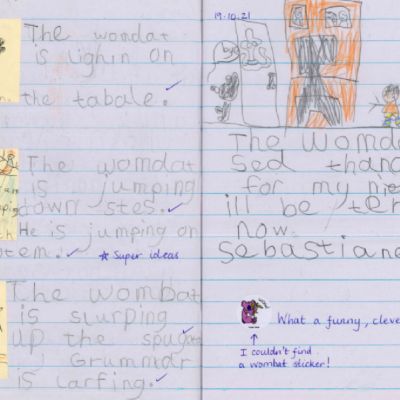 The womdat
is lighin on
the tabale.
The womdat
is jumping
down stes.
He is jumping on
tem.
★ Super ideas
The wombat
is slurping
up the spuget
Grummar
is larfing.
19.10.21
bye
The womda
Sed thanc
for my nie
ill be ter
now.
Sebastiane
What a funny, cleve
↑
I couldn't find
a wombat sticker!